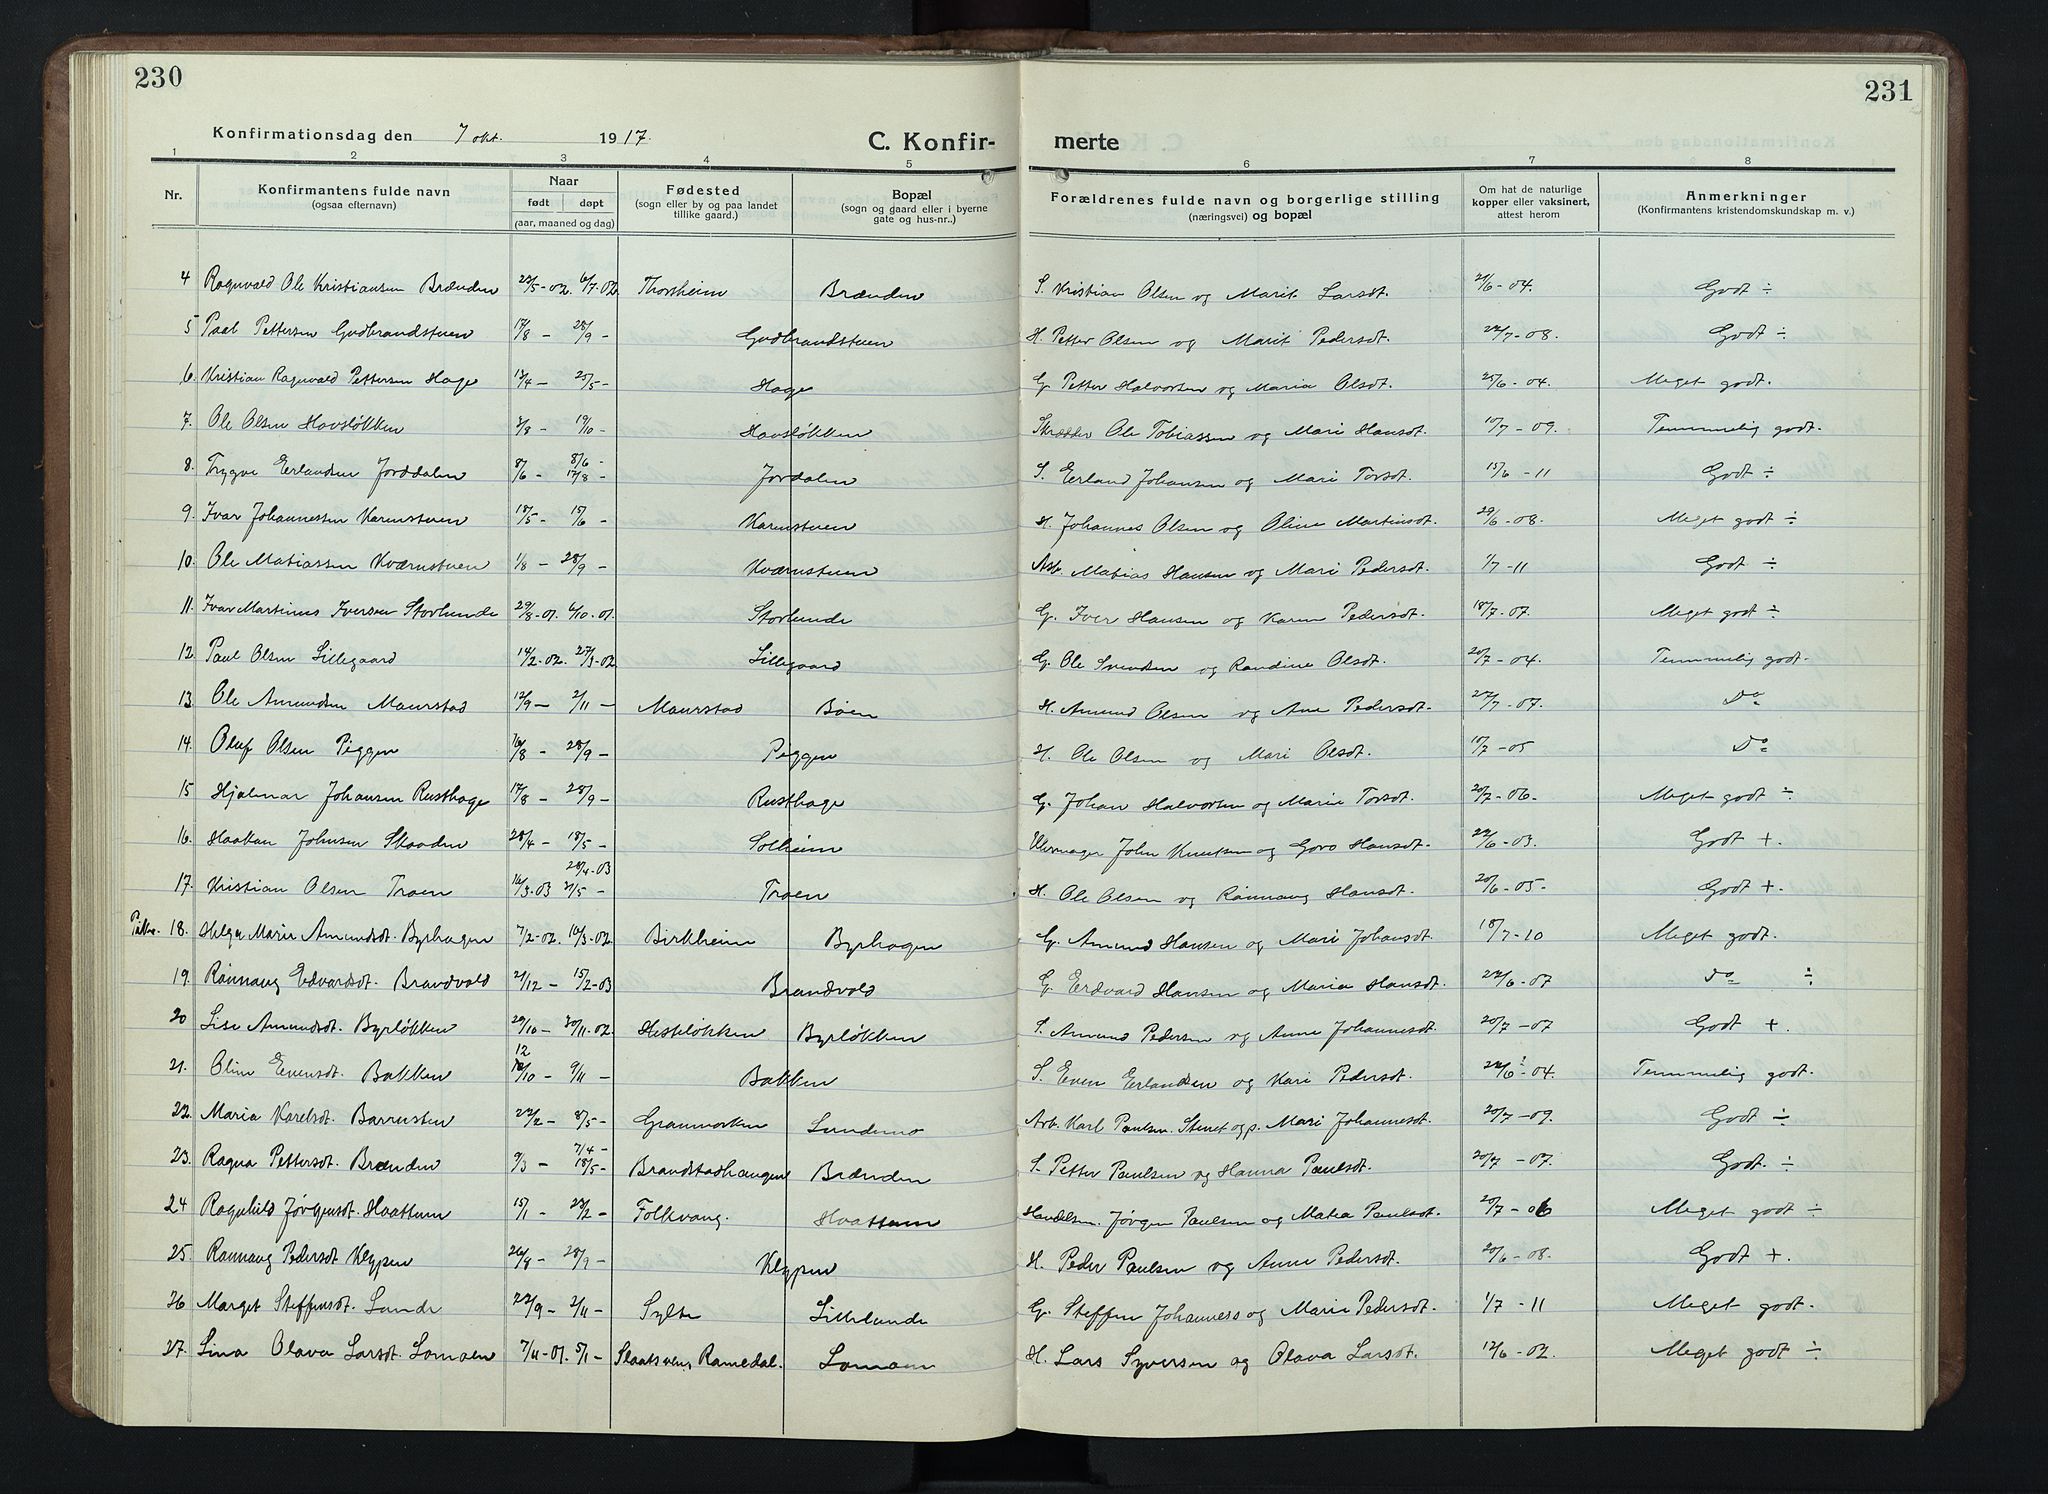 230
231
Konfirmationsdag den 7 okt. 1917.
C. Konfir-
merte
1 2 3 4 5 6 7 8
Nr.
Konfirmantens fulde navn
(ogsaa efternavn)
Naar
født døpt
(aar, maaned og dag)
Fødested
(sogn eller by og paa landet
tillike gaard.)
Bopæl
(sogn og gaard eller i byerne
gate og hus-nr.,)
Forældrenes fulde navn og borgerlige stilling
(næringsvei) og bopæl
Om hat de naturlige
kopper eller vaksinert,
attest herom
Anmerkninger
(Konfirmantens kristendomskundskap m. v.)
4 Ragnvald Ole Kristiansen Brænden 25/5-02. 6/7-02 Thorsheim Brænden S. Kristian Olsen og Marit Larsdt. 21/6-04. Godt ÷
5 Paul Pettersen Gudbrandstuen 17/8 - 28/9 - Gudbrandstuen H. Petter Olsen og Marit Pedersdt. 22/7-08. Godt ÷
6. Kristian Ragnvald Pettersen Hage 13/4 - 25/5 - Hage G. Petter Halvorsen og Maria Olsdt. 25/6-04. Meget godt.
7. Ole Olsen Havsløkken 3/8 - 19/10 - Havsløkken Skrædder Ole Tobiassen og Mari Hansdt. 10/7-09. Temmelig godt.
8. Trygve Erlandsen Jorddalen 8/6 - 8/6 - 17/8 - Jordalen S. Erland Johansen og Mari Torsdt. 15/6-11 Godt ÷
9. Ivar Johannessen Karenstuen 18/5 - 15/6 - Karenstuen H. Johannes Olsen og Oline Martinsdt. 29/6-08. Meget godt ÷
10. Ole Matiassen Kværnstuen 1/8 - 28/9 - Kværnstuen Arb. Matias Hansen og Mari Pedersdt. 1/7-11 Godt ÷
11. Ivar Martinus Iversen Storlunde 29/8-01. 6/10-01. Storlunde G. Iver Hansen og Karen Pedersdt. 18/7-07. Meget godt ÷
12. Paul Olsen Lillegaard 14/2-02. 27/3-02 Lillegaard G. Ole Svendsen og Randine Olsdt. 20/7-04. Temmelig godt.
13. Ole Amundsen Maurstad 12/9 - 2/11 - Maurstad Bøen H. Amund Olsen og Ane Pedersdt. 22/7-07. Do
14. Oluf Olsen Piggen 16/8 - 28/9 - Piggen H. Ole Olsen og Mari Olsdt. 18/7-05 Do
15 Hjalmar Johansen Rusthage 17/8 - 28/9 - Rusthage G. Johan Halvorsen og Marie Torsdt. 20/7-06. Meget godt ÷
16. Haakon Johnsen Skaaden 28/4 - 18/5 - Solheim John Knutsen og Goro Hansdt. 22/6-03. Godt +.
17. Kristian Olsen Troen 16/3-03 28/4-03 21/5 - Troen H. Ole Olsen og Rønnaug Hansdt. 20/6-05. Godt +.
Piker. 18. Helga Marie Amundsdt. Byrhagen 7/2-02. 16/3-02. Birkheim Byrhagen G. Amund Hansen og Mari Johansdt. 18/7-10 Meget godt.
19. Rønnaug Edvardsdt. Brandvold 21/12 - 15/2-03 Brandvold G. Erdvard Hansen og Maria Hansdt. 22/6-07 do ÷
20 Lise Amundsdt. Byrløkken 29/10 - 30/11-02. Hesteløkken Byrløkken S. Amund Pedersen og Anne Johannesdt. 20/7-07 Godt +.
21. Oline Evensdt. Bakken 12/10 - 9/11 - Bakken S. Even Erlandsen og Kari Pedersdt. 22/6-04. Temmelig godt.
22. Maria Karlsdt. Barrusten 22/2 - 8/5 - Granmorken Lundemo Arb. Karl Paulsen Stenet og p. Mari Johannesdt. 20/7-09. Godt ÷
23. Ragna Pettersdt. Brænden 9/3 - 7/4 - 18/5 - Brandstadhaugen Brænden S. Petter Paulsen og Hanna Paulsdt. 20/7-07. Godt. ÷
24 Ragnhild Jørgensdt. Haattum 15/1 - 23/2 - Folkvang. Haattum Handelsm. Jørgen Paulsen og Matea Paulsdt. 20/7-06 Meget godt ÷
25. Rønnaug Pedersdt Klypen 26/8 - 28/9 - Klypen H. Peder Paulsen og Anne Pedersdt. 20/6-08. Godt +.
26 Marget Steffensdt. Lunde 22/9 - 2/11 - Sylte Lillelunde G. Steffen Johanness og Marie Pedersdt. 1/7-11 Meget godt.
27. Lina Olava Larsdt. Lomoen 7/11-01. 5/1 - Slaatsveen, Ramedal. Lomoen H. Lars Syversen og Olava Larsdt. 12/6-02. Meget godt ÷